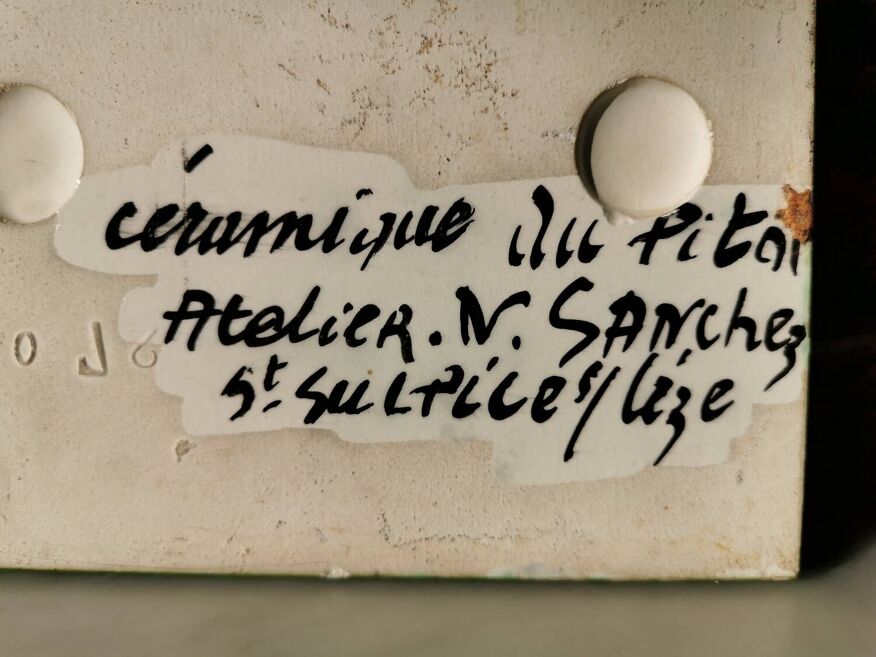 céramique du Pitol
Atelier.N.SANchez
St. Sulpice s/lèze